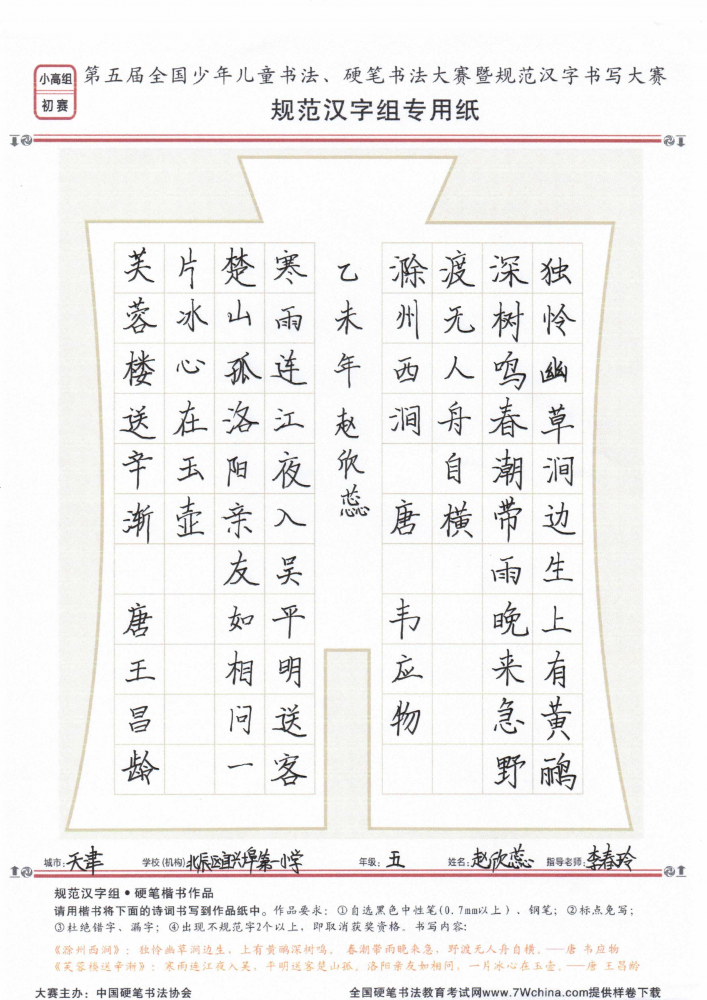 小高组
初赛
第五届全国少年儿童书法、硬笔书法大赛暨规范汉字书写大赛
规范汉字组专用纸
独怜幽草涧边生上有黄鹂
深树鸣春潮带雨晚来急野
渡无人舟自横
滁州西涧 唐 韦应物
乙未年赵欣蕊
寒雨连江夜入吴平明送客
楚山孤洛阳亲友如相问一
片冰心在玉壶
芙蓉楼送辛渐 唐王昌龄
城市:天津 学校(机构)北辰区宜兴埠第一小学 年级:五 姓名:赵欣蕊 指导老师:李春玲
规范汉字组•硬笔楷书作品
请用楷书将下面的诗词书写到作品纸中。作品要求:①自选黑色中性笔(0.7mm以上)、钢笔;②标点免写;
③杜绝错字、漏字;④出现不规范字2个以上,即取消获奖资格。书写内容:
《滁州西涧》:独怜幽草涧边生,上有黄鹂深树鸣。 春潮带雨晚来急,野渡无人舟自横。——唐 韦应物
《芙蓉楼送辛渐》:寒雨连江夜入吴,平明送客楚山孤。洛阳亲友如相问,一片冰心在玉壶。——唐 王昌龄
大赛主办:中国硬笔书法协会 全国硬笔书法教育考试网www.7Wchina.com提供样卷下载